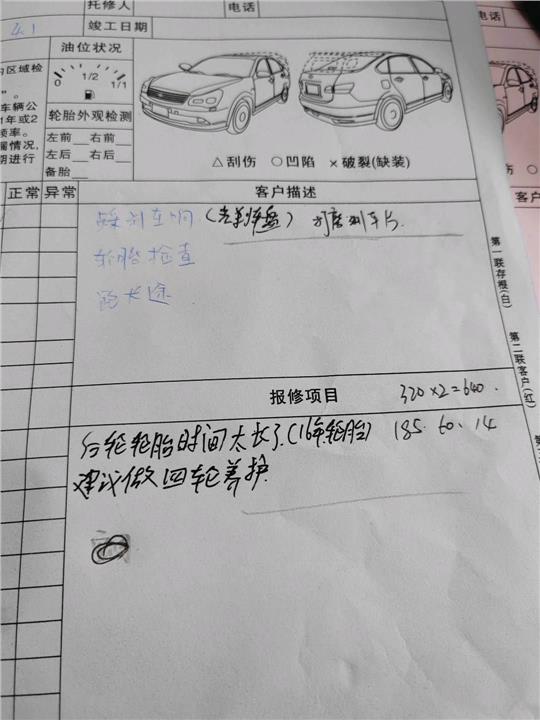 托修人 电话
4.1 竣工日期
油位状况
区域检
0 1/2 1/1
车辆公
1年或2
轮胎外观检测
频率。
漏情况,
左前__右前__
期进行
左后__右后__
备胎__
△刮伤 ○凹陷 ×破裂(缺装)
正常 异常 客户描述
踩刹车响 打磨刹车片
轮胎检查
跑长途
报修项目 320×2=640.
后轮轮胎时间太长了(16年轮胎) 185.60.14
建议做四轮养护
第一联存根(白)
第二联客户(红)
电话
△刮
客户